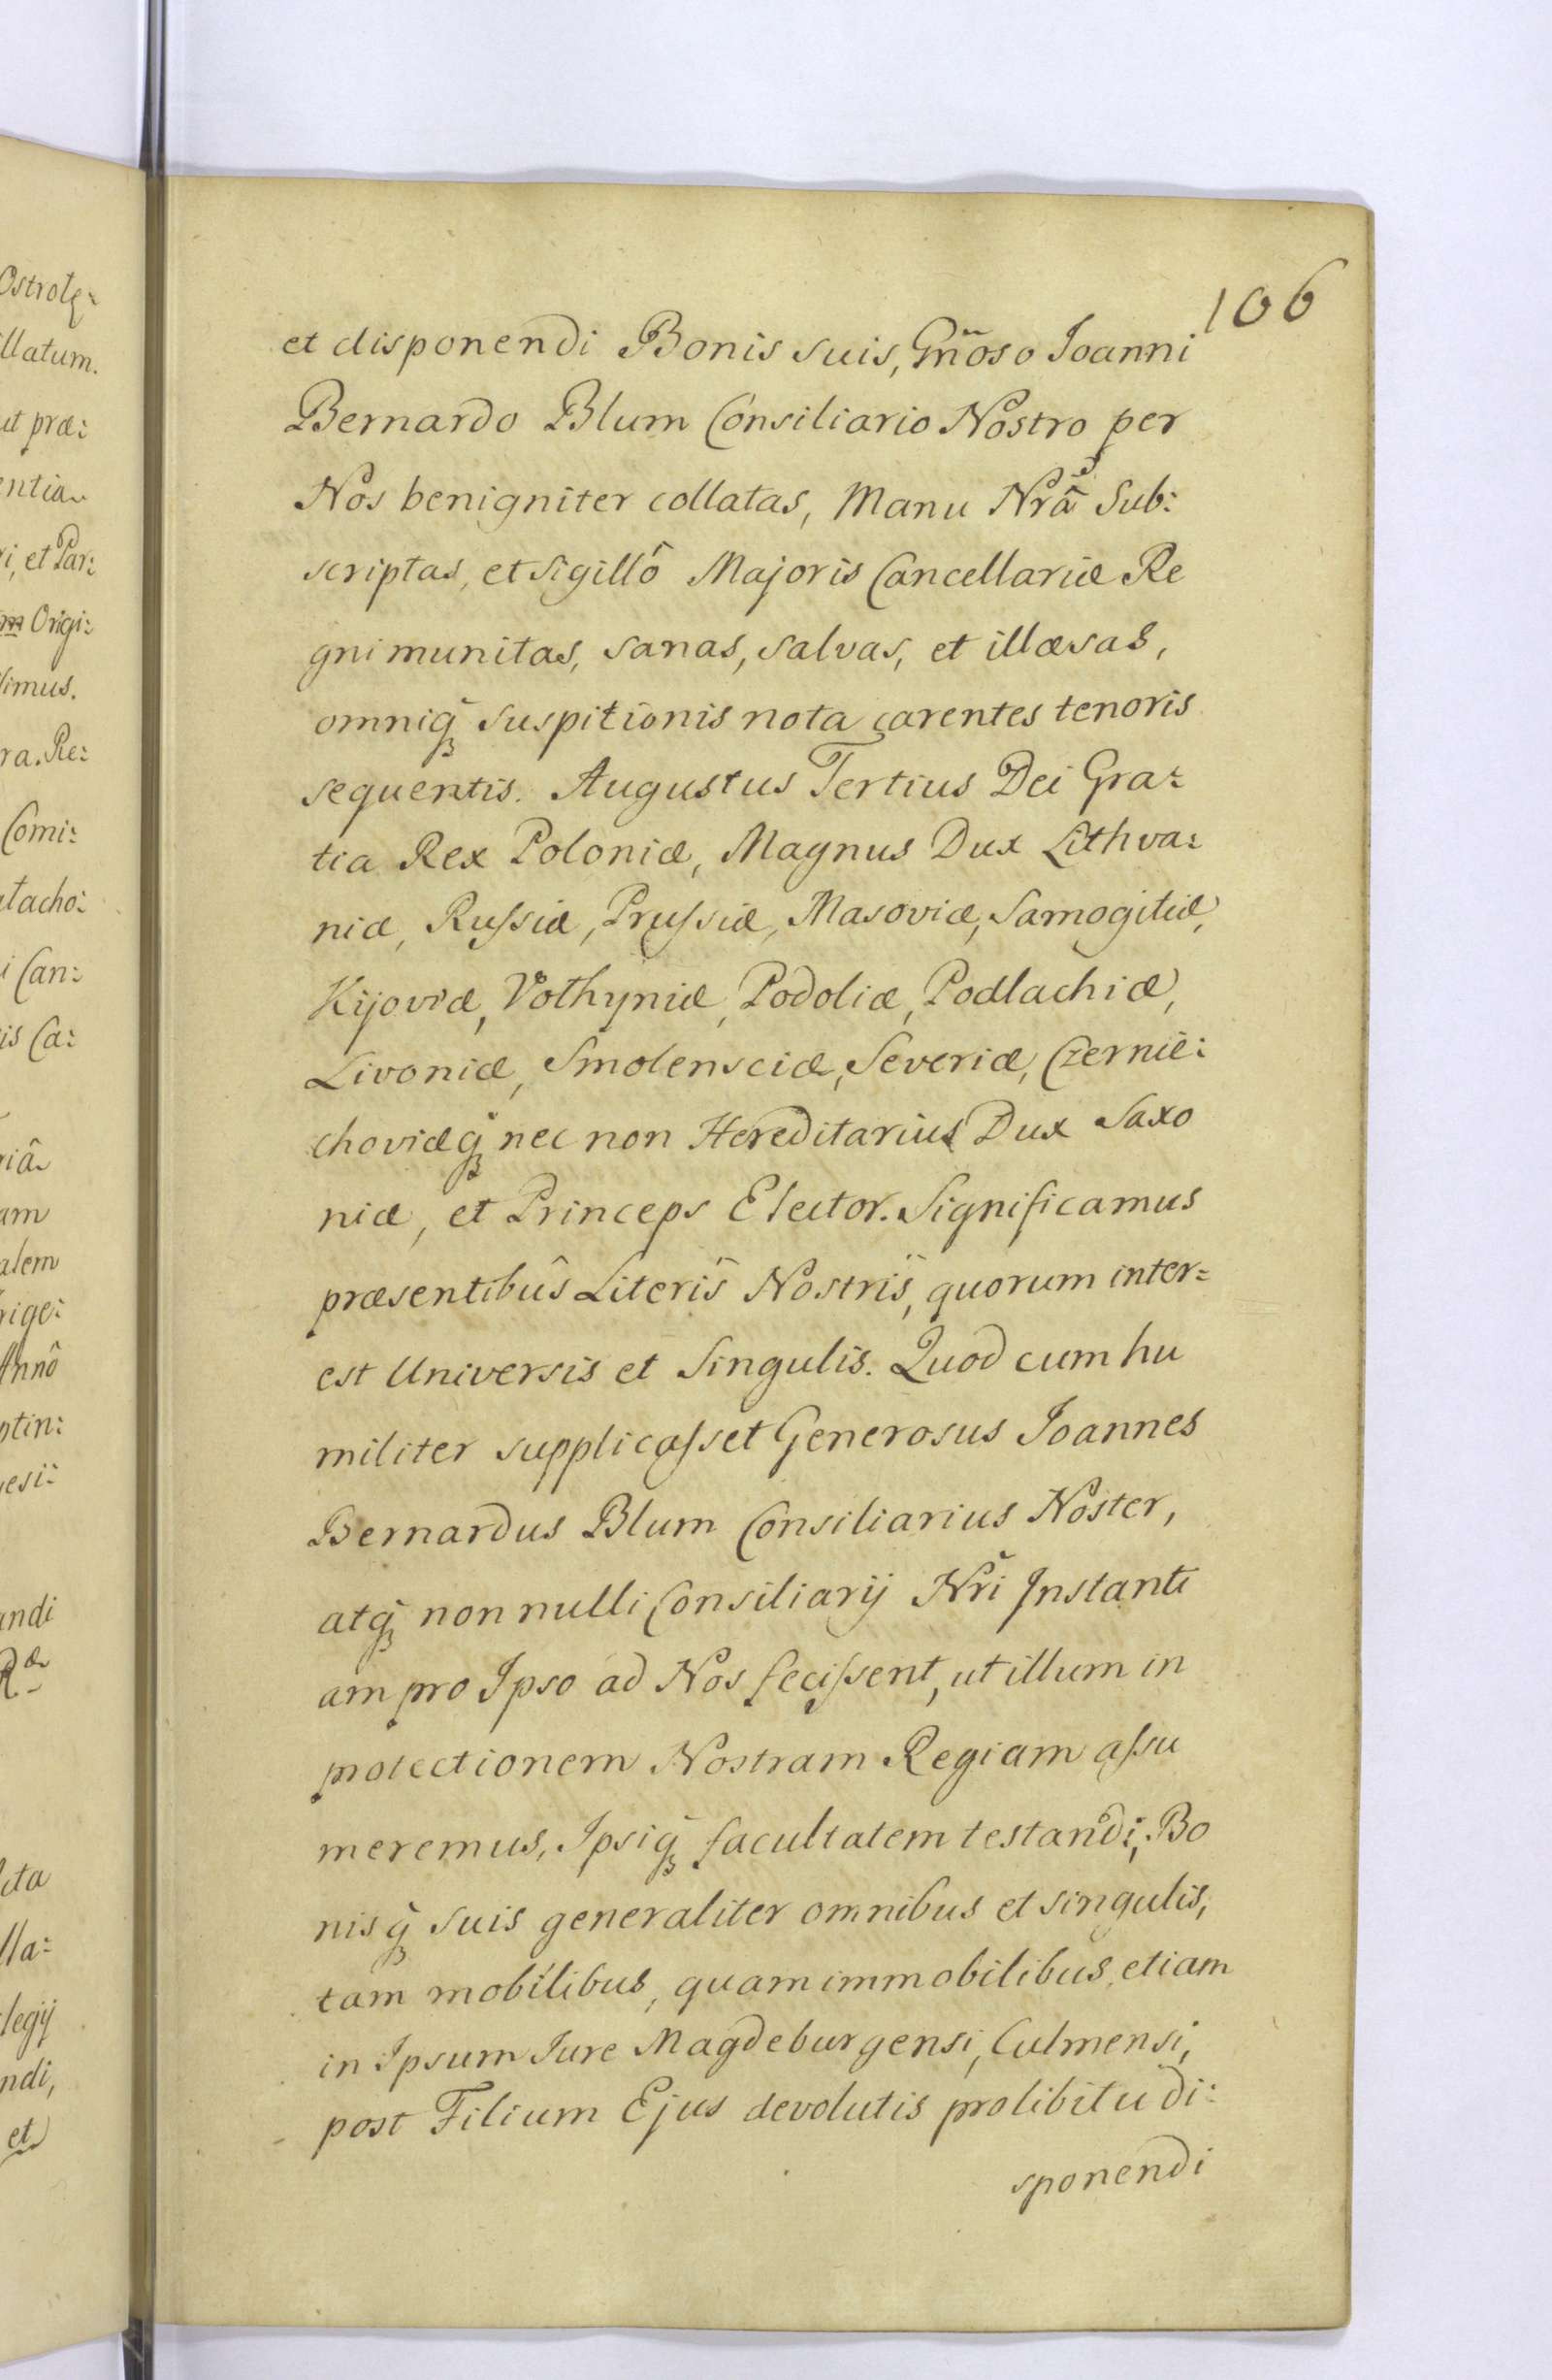 106
et disponendi Bonis suis, Gñoso Joanni
Bernardo Blum Consiliario Nostro per
Nos benigniter collatas, Manu Nrã Sub:
scriptas, et sigillô Majoris Cancellariæ Re
gni munitas, sanas, salvas, et illæsas,
omniq̃ suspitionis nota carentes tenoris
sequentis. Augustus Tertius Dei Gra:
tia Rex Poloniæ, Magnus Dux Lithva:
niæ, Ruſsiæ, Pruſsiæ, Masoviæ, Samogitiæ,
Kijoviæ, Volhyniæ, Podoliæ, Podlachiæ,
Livoniæ, Smolensciæ, Severiæ, Czernie:
choviæq̃ nec non Hereditarius Dux Saxo
niæ, et Princeps Elector. Significamus
præsentibûs Literîs Nostrîs, quorum inter:
est Universis et Singulis. Quod cum hu
militer supplicaſset Generosus Joannes
Bernardus Blum Consiliarius Noster,
atq̃ non nulli Consiliarij Nrĩ Instanti
am pro Ipso ad Nos feciſsent, ut illum in
protectionem Nostram Regiam aſsu
meremus, Ipsiq̃ facultatem testandi, Bo
nisq̃ suis generaliter omnibus et singulis,
tam mobilibus, quam immobilibus, etiam
in Ipsum Jure Magdeburgensi, Culmensi,
post Filium Ejus devolutis prolibitu di:
sponendi
Ostrolę:
llatum.
ut præ:
entia
ri, et Par:
m Origi:
limus.
ra. Re:
Comi:
tacho:
i Can:
is Ca:
riâ
am
alem
rige:
Annô
ptin:
esi:
andi
cta
lla:
legij
ndi,
et